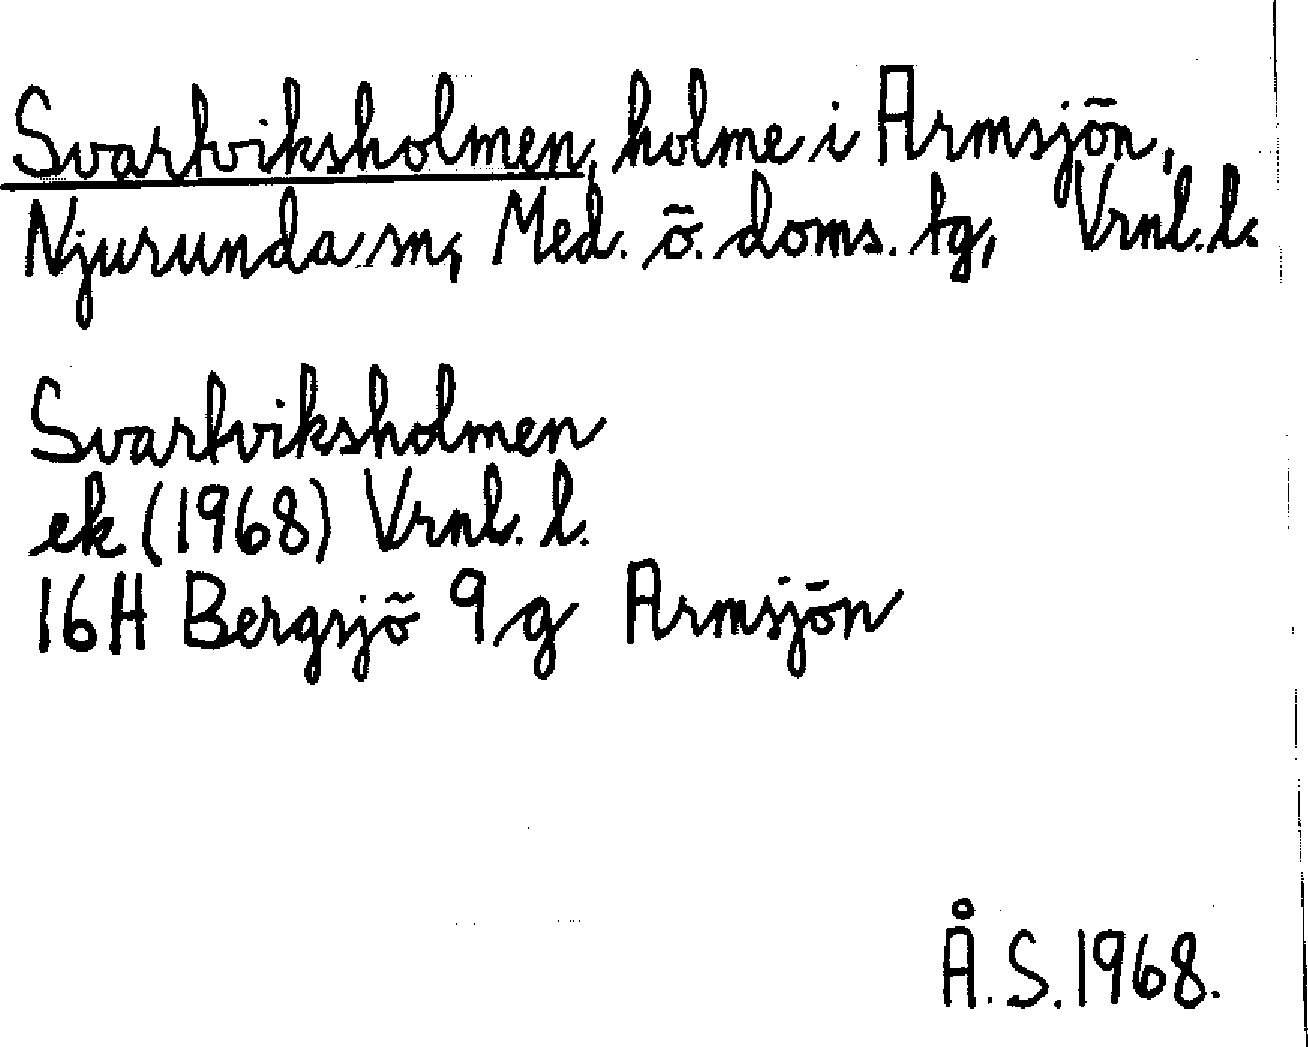 Svartviksholmen, holme i Armsjön,
Njurunda sn, Med. ö. doms. tg, Vrnl. l.
Svartviksholmen
ek (1968) Vrnl. l.
16H Bergsjö 9g Armsjön
Å.S. 1968.